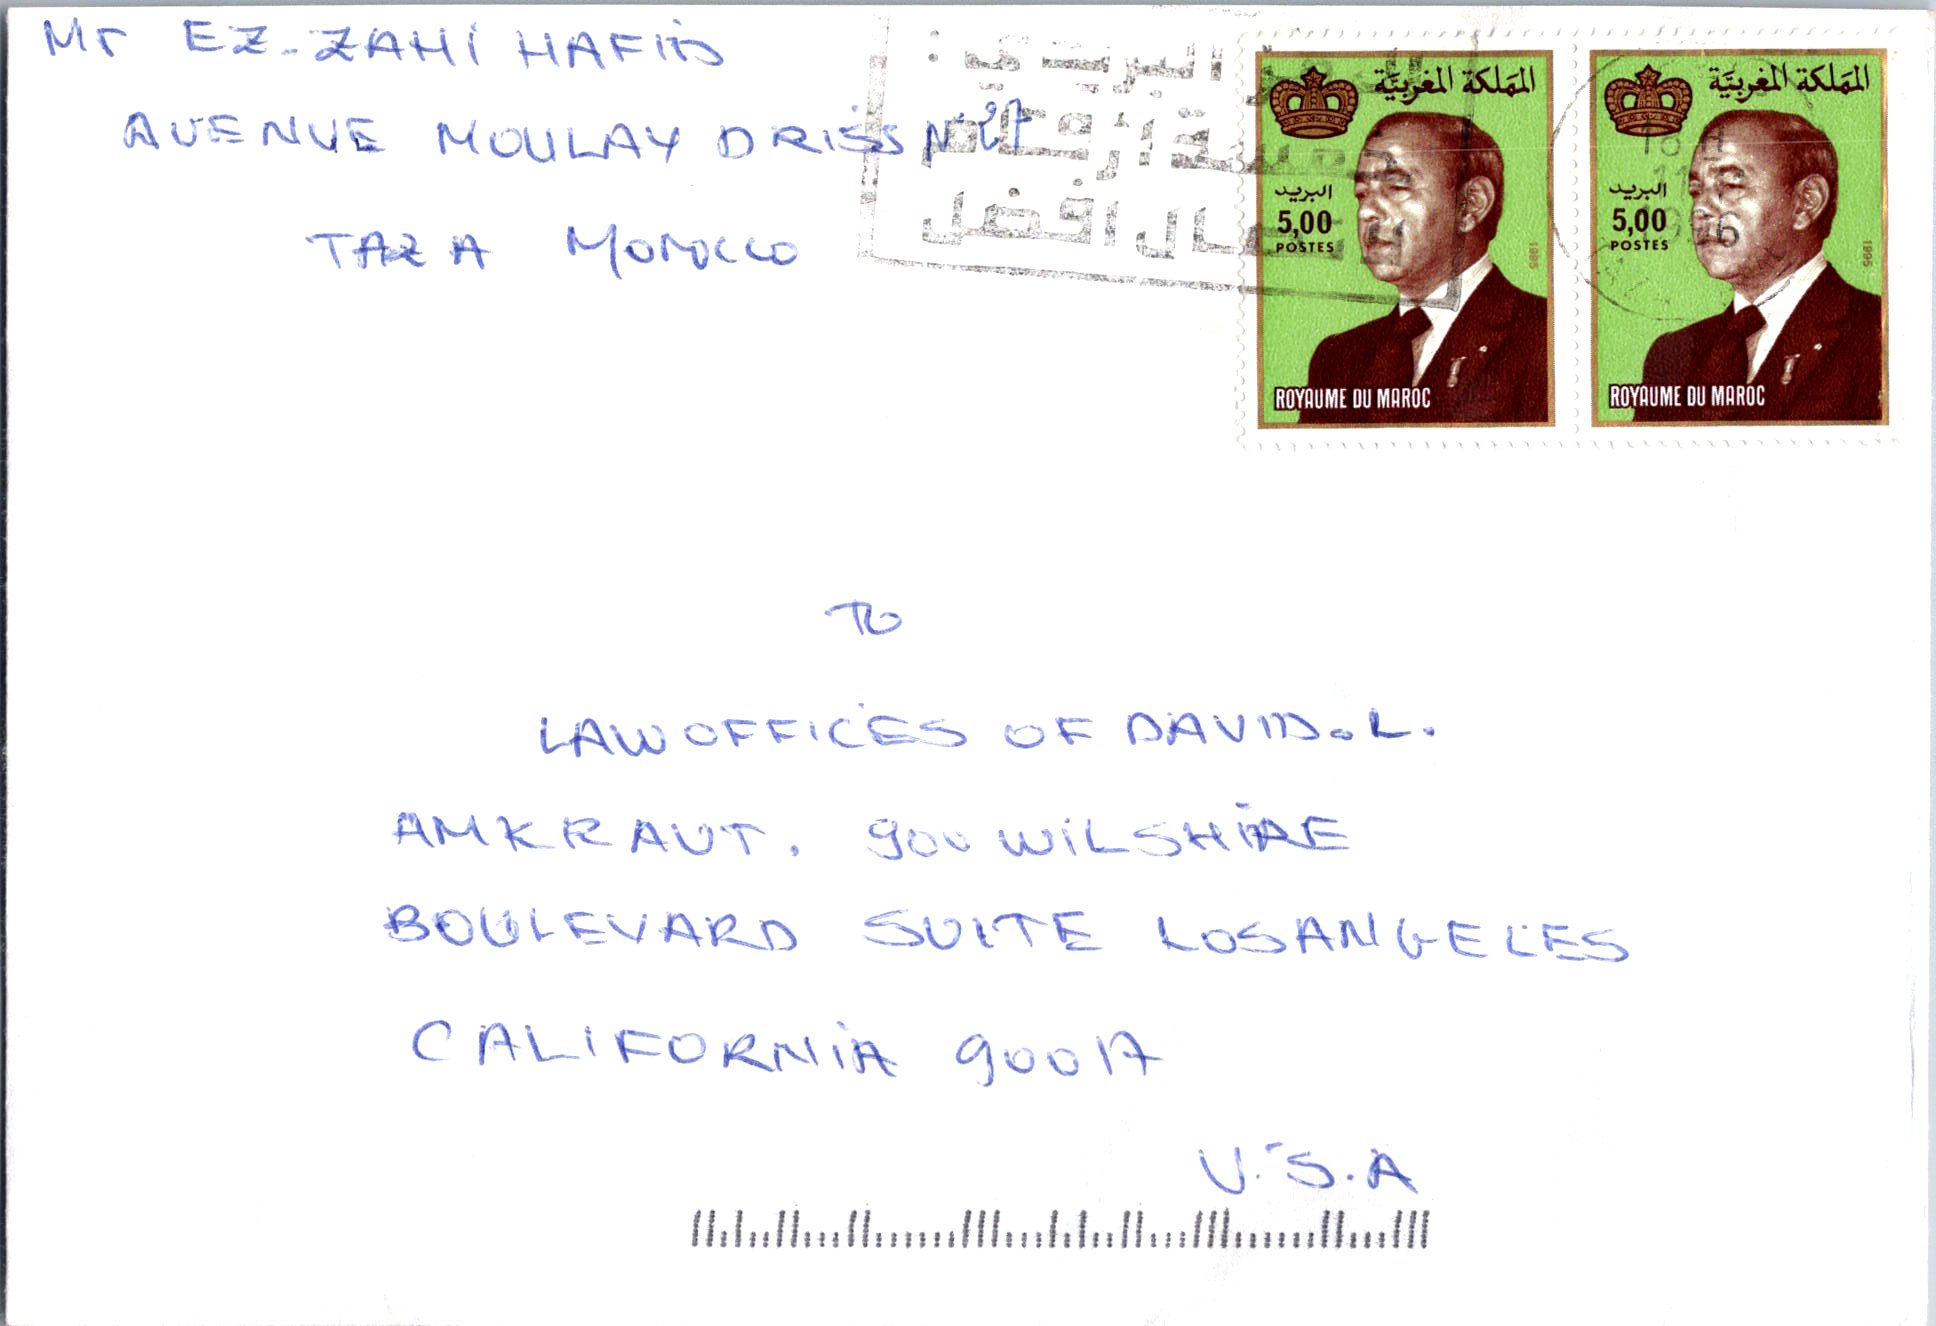 Mr EZ-ZAHI HAFID
AVENUE MOULAY DRISS N°27
TAZA MOROCCO
البريدي :
خمسة أرقام
أفضل
المملكة المغربية
البريد
5,00
POSTES
1995
ROYAUME DU MAROC
المملكة المغربية
البريد
5,00
POSTES
1995
ROYAUME DU MAROC
TO
LAW OFFICES OF DAVID.L.
AMKRAUT. 900 WILSHIRE
BOULEVARD SUITE LOSANGELES
CALIFORNIA 90017
U.S.A